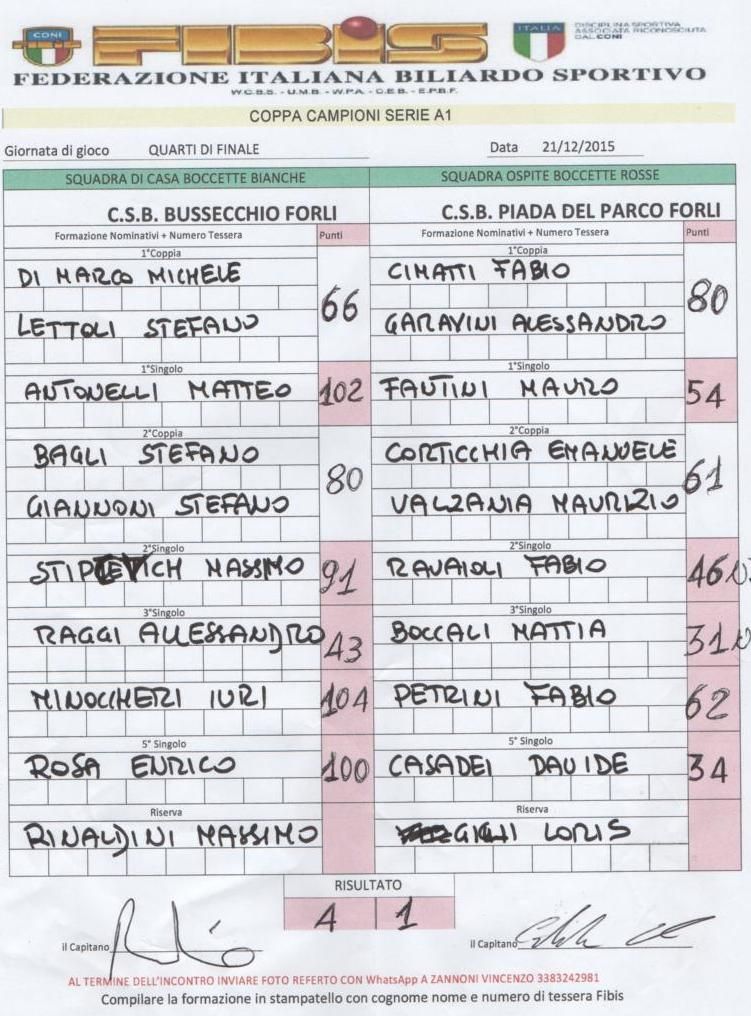 CONI
FIBIS
ITALIA
DISCIPLINA SPORTIVA
ASSOCIATA RICONOSCIUTA
DAL CONI
FEDERAZIONE ITALIANA BILIARDO SPORTIVO
W.C.B.S. - U.M.B. - W.P.A. - C.E.B. - E.P.B.F.
COPPA CAMPIONI SERIE A1
Giornata di gioco QUARTI DI FINALE Data 21/12/2015
SQUADRA DI CASA BOCCETTE BIANCHE SQUADRA OSPITE BOCCETTE ROSSE
C.S.B. BUSSECCHIO FORLI C.S.B. PIADA DEL PARCO FORLI
Formazione Nominativi + Numero Tessera Punti Formazione Nominativi + Numero Tessera Punti
1°Coppia 1°Coppia
DI MARCO MICHELE CIMATTI FABIO
66 80
LETTOLI STEFANO GARAVINI ALESSANDRO
1°Singolo 1°Singolo
ANTONELLI MATTEO 102 FANTINI MAURO 54
2°Coppia 2°Coppia
BAGLI STEFANO CORTICCHIA EMANUELE
80 61
GIANNONI STEFANO VALZANIA MAURIZIO
2°Singolo 2°Singolo
STIPCEVICH MASSIMO 91 RAVAIOLI FABIO 46
3°Singolo 3°Singolo
RAGGI ALLESSANDRO 43 BOCCALI MATTIA 31
MINOCCHERI IURI 104 PETRINI FABIO 62
5° Singolo 5° Singolo
ROSA ENRICO 100 CASADEI DAVIDE 34
Riserva Riserva
RINALDINI MASSIMO LORIS
RISULTATO
4 1
il Capitano il Capitano
AL TERMINE DELL'INCONTRO INVIARE FOTO REFERTO CON WhatsApp A ZANNONI VINCENZO 3383242981
Compilare la formazione in stampatello con cognome nome e numero di tessera Fibis